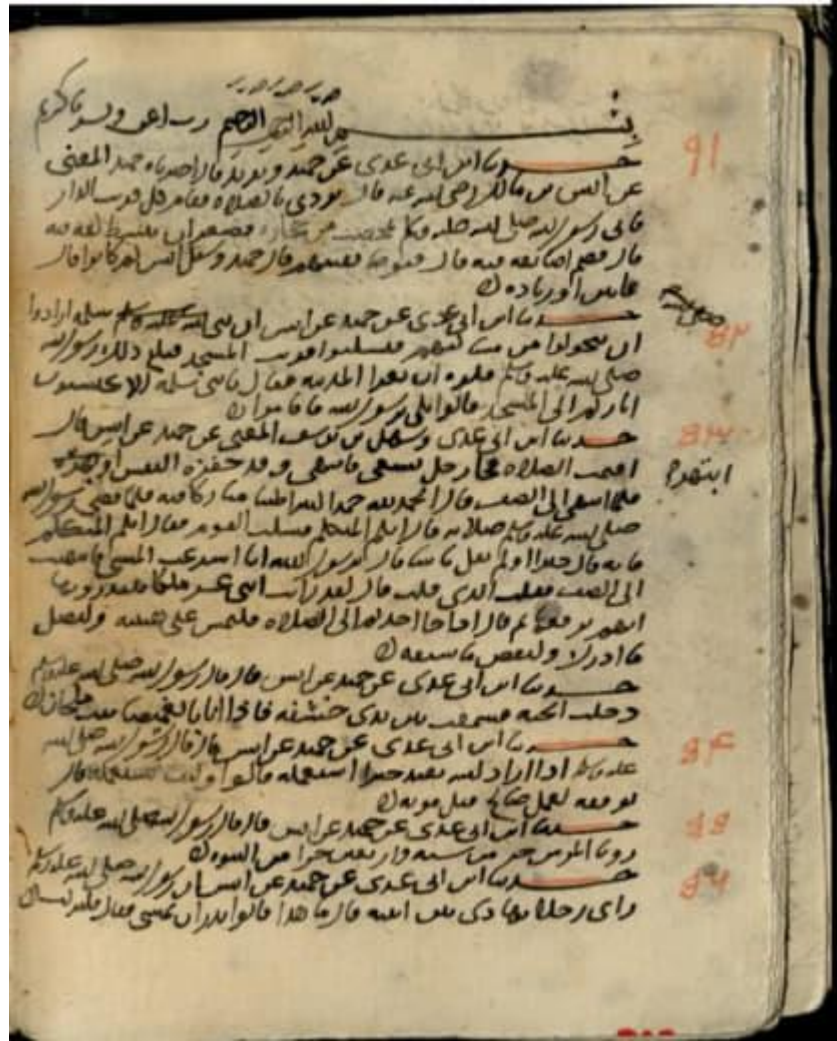 بسم الله الرحمن الرحيم رب اعن ويسر يا كريم
حدثنا ابن ابي عدي عن حميد ويزيد قال اخبرنا حميد المعنى
عن انس بن مالك رضي الله عنه قال نودي بالصلاة فقام كل قريب الدار
فاتي رسول الله صلى الله عليه وسلم بمخضب من حجارة فصغر ان يبسط كفه فيه
قال فضم اصابعه فيه قال فتوضا بقيتهم قال حميد وسئل انس كم كانوا قال
ثمانين او زيادة
حدثنا ابن ابي عدي عن حميد عن انس ان بني سلمة ارادوا
ان يتحولوا من منازلهم فيسكنوا قرب المسجد فبلغ ذلك رسول الله
صلى الله عليه وسلم فكره ان تعرا المدينة فقال يا بني سلمة الا تحتسبون
اثاركم الى المسجد قالوا بلى يرسول الله فاقاموا
حدثنا ابن ابي عدي وسهل بن يوسف المعنى عن حميد عن انس قال
اقيمت الصلاة فجا رجل يسعى فانتهى وقد حفزه النفس او
ابتهر
فلما انتهى الى الصف قال الحمد لله حمدا كثيرا طيبا مباركا فيه فلما قضى رسول الله
صلى الله عليه وسلم صلاته قال ايكم المتكلم فسكت القوم فقال ايكم المتكلم
فانه قال خيرا او لم يقل باسا قال يرسول الله انا اسرعت المشي فانتهيت
الى الصف فقلت الذي قلت قال لقد رايت اثني عشر ملكا يبتدرونها
ايهم يرفعها ثم قال اذا جا احدكم الى الصلاة فليمش على هينته وليصل
ما ادرك وليقض ما سبقه
حدثنا ابن ابي عدي عن حميد عن انس قال قال رسول الله صلى الله عليه وسلم
دخلت الجنة فسمعت بين يدي خشفة فاذا انا بالغميصا بنت ملحان
حدثنا ابن ابي عدي عن حميد عن انس قال قال رسول الله صلى الله
عليه وسلم اذا اراد الله بعبد خيرا استعمله قالوا وكيف يستعمله قال
يوفقه لعمل صالح قبل موته
حدثنا ابن ابي عدي عن حميد عن انس قال قال رسول الله صلى الله عليه وسلم
رويا المومن جز من ستة واربعين جزا من النبوة
حدثنا ابن ابي عدي عن حميد عن انس ان رسول الله صلى الله عليه وسلم
راى رجلا يهادى بين ابنيه قال ما هذا قالوا نذر ان يمشي فقال